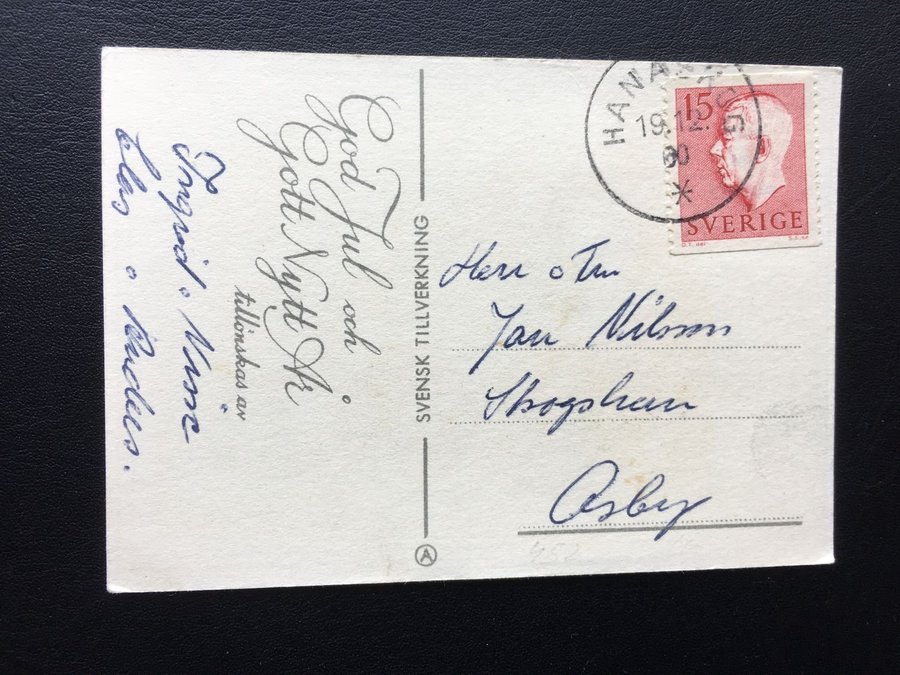 God Jul och
Gott Nytt År
tillönskas av
Ingrid o Nisse
Clas o Anders.
SVENSK TILLVERKNING
A
HANASKOG
19.12.
60
15
SVERIGE
Herr o Fru
Jan Nilsson
Skogshem
Asby
452